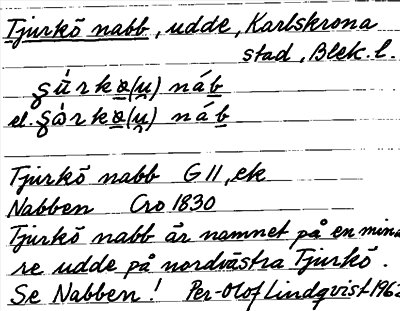 Tjurkö nabb, udde, Karlskrona
stad, Blek. l.
náb
el. náb
Tjurkö nabb G II, ek
Nabben Cro 1830
Tjurkö nabb är namnet på en mind
re udde på nordvästra Tjurkö.
Se Nabben! Per-Olof Lindqvist 1962